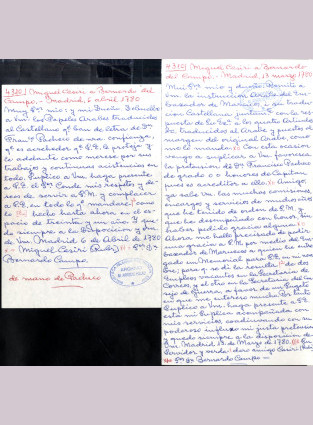 4320) Miguel Casiri a Bernardo del
Campo. - Madrid, 6 abril, 1780
Muy Sr. mio: y mi Dueño Debuelbo
a Vm. los Papeles Arabes traducidos
al Castellano qe. van de letra de Dn.
Francco. Pacheco de mi confianza,
qe. es acrehedor a qe. S.E. le proteja y
le adelante como merece por sus
trabajos y continuas asistencias en
todo. Suplico a Vm. haga presente
a S.E. el Sr. Conde mis respetos y de-
seos de servir a S.M. y complacer
a S.E. en todo lo qe. mandare como
lo he hecho hasta ahora en el es-
pacio de treinta y un año y que-
do siempre a la Disposicion y Ds.
de Vm. Madrid 6 de Abril de 1780
= Miguel Casiri (Rub.) = Sr. Dn.
Bernardo Campo
de mano de Pacheco
4312) Miguel Casiri a Bernardo
del Campo. - Madrid, 13 marzo, 1780
Mui Sr. mio y dueño: Remiti a
Vm. la instruccion Arabe del Em-
baxador de Marruecos, y su tradu-
cion Castellana juntamte. con la res-
puesta de Su Exa. a los quatro Articu-
los, traducidos al Arabe y puestos al
margen del original Arabe, como
me lo mandó. Con esta ocasion
vengo a suplicar a Vm. favoresca
la pretension de Dn. Francisco Pacheco
de grado o honores de Capitan
pues es acreditor a ello. Amigo,
ya sabe Vm. las muchas comisiones,
encargos y servicios de muchos años
que he tenido de orden de S.M. y
que he desempeñado con honor, sin
haber pedido gracia alguna.
Ahora me hallo precisado de pedir
una gracia a S.M. por medio del Em-
baxador de Marruecos a quien he entre-
gado un Memorial para S.E. en mi nom-
bre; para qe. se di las resultas de dos
Empleos vacantes en la Secretaria de
Correos, y el otro en la Secretaria del Con-
sejo de Guerra, a favor de un Sugeto
que me interesa mucho. Por tanto
suplico a Vm. haga presente a S.E.
esta mi suplica acompañada con
mis servicios coadiuvando con su
poderoso influxo mi justa pretension
y quedo siempre a la disposicion de
Vm. Madrid, 13 de Marzo de 1780. Su
Servidor y verdadero amigo Casiri
Sr. Dn. Bernardo Campo =